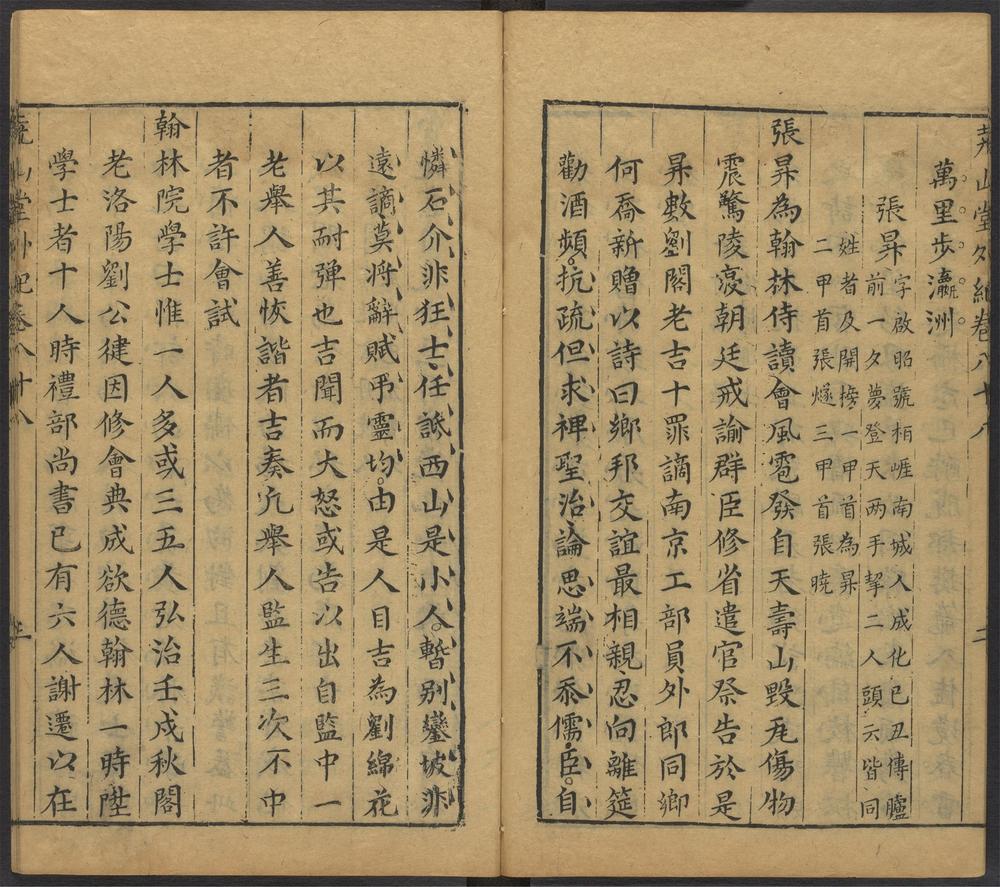 堯山堂外紀卷八十八
二
萬里步瀛洲
張昇
字啟昭號栢崕南城人成化己丑傳臚
前一夕夢登天两手挈二人頭六皆同
姓者及開榜一甲首為昇
二甲首張燧三甲首張曉
張昇為翰林侍讀會風雹發自天壽山毀𤬦傷物
震驚陵寢朝廷戒諭群臣修省遣官祭告於是
昇數劉閣老吉十罪謫南京工部員外郎同鄉
何喬新贈以詩曰鄉邦交誼最相親忍向離筵
勸酒頻抗疏但求裨聖治論思端不忝儒臣自
憐石介非狂士任詆西山是小人暫别鑾坡非
遠謫莫將辭賦弔靈均由是人目吉為劉綿花
以其耐弹也吉聞而大怒或告以出自監中一
老舉人善恢諧者吉奏凢舉人監生三次不中
者不許會試
翰林院學士惟一人多或三五人弘治壬戌秋閣
老洛陽劉公徤因修會典成欲德翰林一時陞
學士者十人時禮部尚書已有六人謝遷以在
堯山堂外紀卷八十八